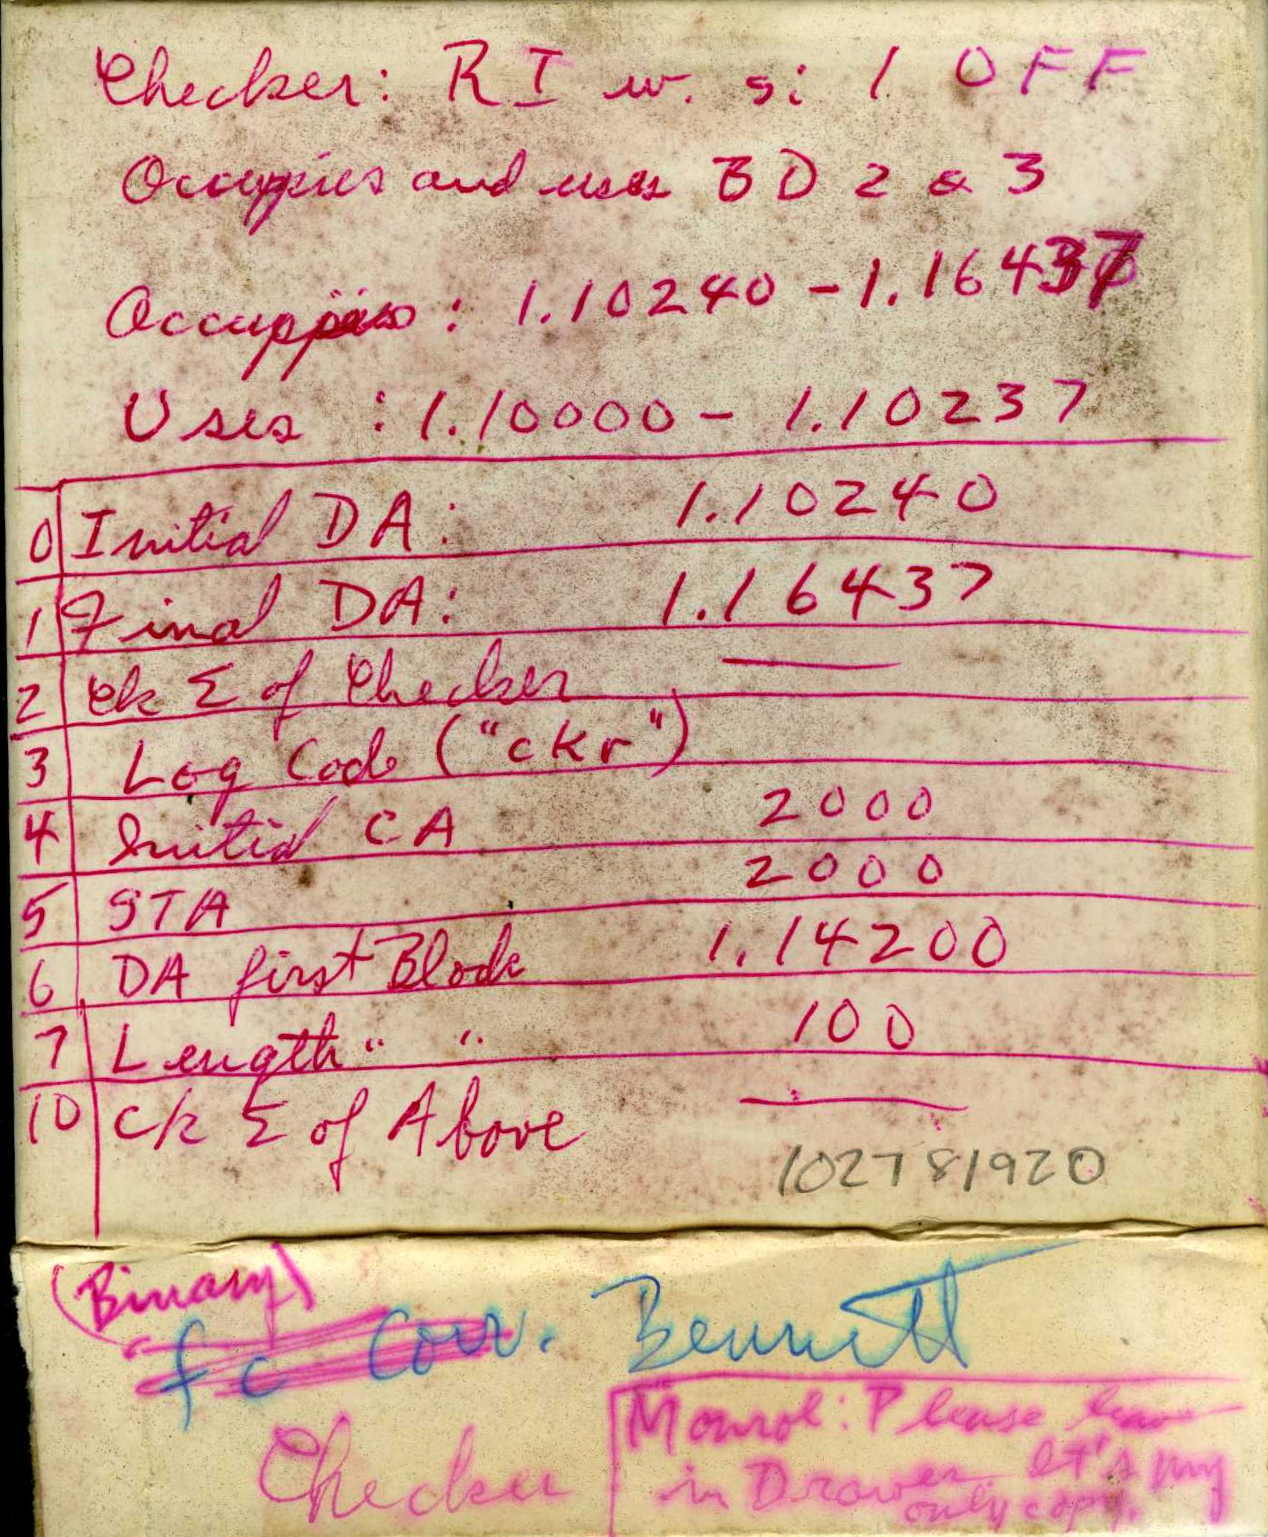 Checker: RI w. s: 1 OFF
Occuppies and uses BD 2 & 3
Occuppies: 1.10240 - 1.16437
Uses : 1.10000 - 1.10237
0 Initial DA: 1.10240
1 Final DA: 1.16437
2 Ck Σ of Checker ——
3 Log Code ("ckr")
4 Initial CA 2000
5 STA 2000
6 DA first Block 1.14200
7 Length " " 100
10 Ck Σ of Above ——
102781920
(Binary)
fc Corr. Bennett
Checker
Monrol: Please leave
in Drawer. It's my
only copy.